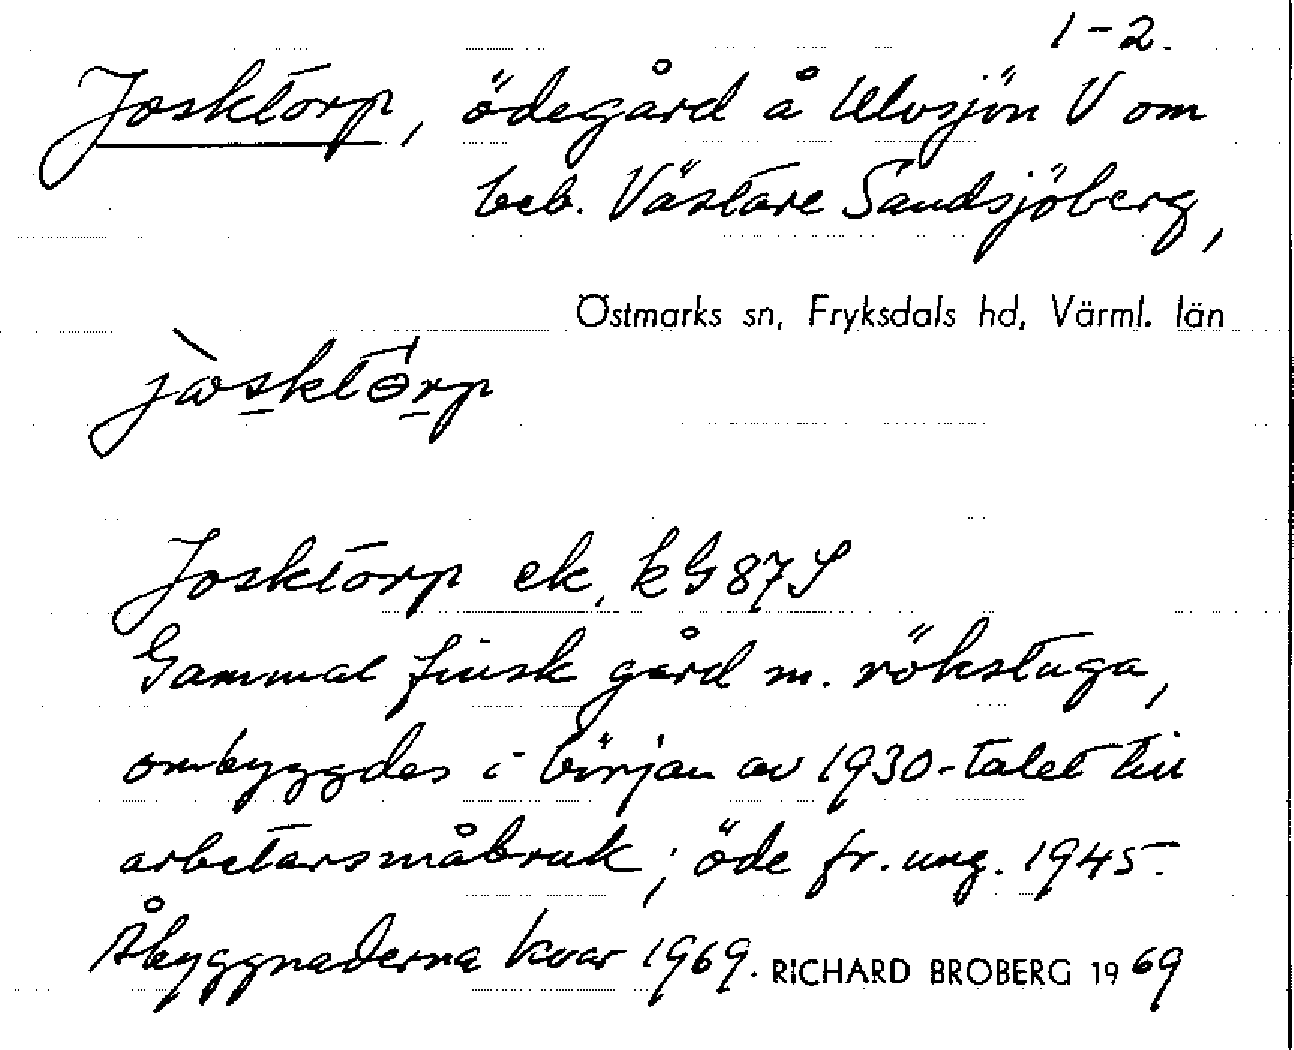 1-2.
Josktorp, ödegård å Ulvsjön V om
beb. Västare Sandsjöberg,
Östmarks sn, Fryksdals hd, Värml. län
Josktorp ek. kG87S
Gammal finsk gård m. rökstuga,
ombyggdes i början av 1930-talet till
arbetarsmåbruk; öde fr. ung. 1945.
Åbyggnaderna kvar 1969. RICHARD BROBERG 1969